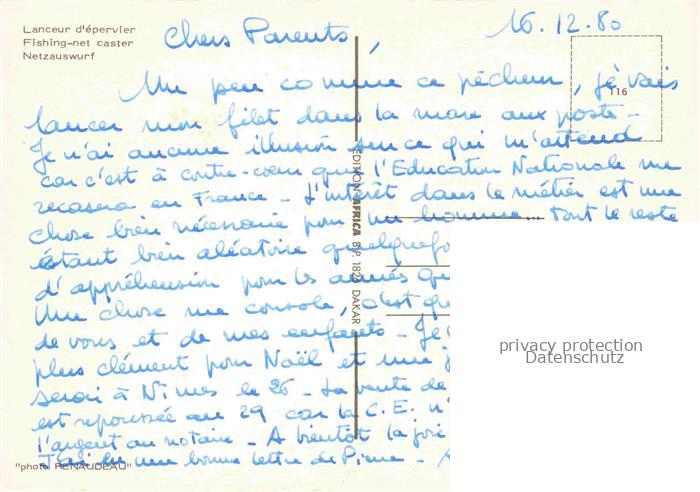 Lanceur d'épervier
Fishing-net caster
Netzauswurf
16.12.80
Chers Parents,
Un peu comme ce pêcheur, je vais
lancer mon filet dans la mare aux poste-
Je n'ai aucune illusion sur ce qui m'attend
car c'est à contre-cœur que l'Education Nationale me
recasera en France - L'intérêt dans le métier est une
chose bien nécessaire pour un homme... tout le reste
étant bien aléatoire quelquefo
d'appréhension pour les années qu
Une chose me console, c'est que
de vous et de mes enfants - Je
plus clément pour Noël et une j
serai à Nimes le 26 - La vente de
est repoussée au 29 car la C.E. n'
l'argent au notaire - A bientôt la joie
J'ai eu une bonne lettre de Pierre -
116
EDITION AFRICA B.P. 1826 DAKAR
"photo RENAUDEAU"
privacy protection
Datenschutz